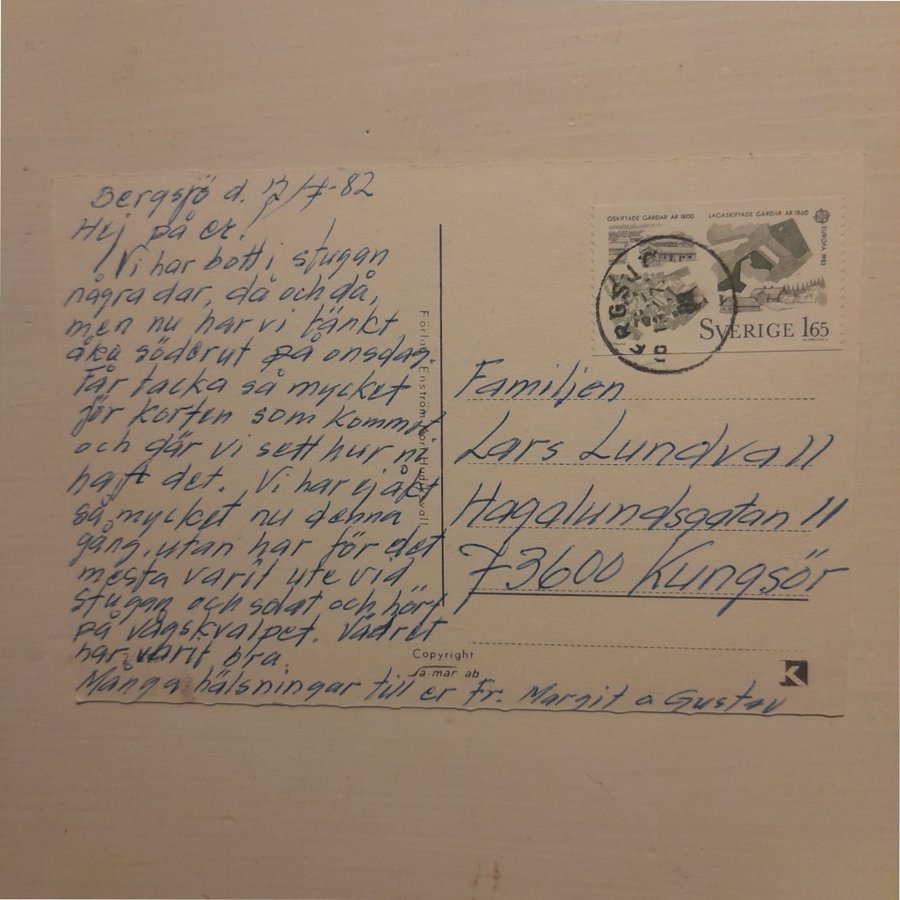 Bergsjö d. 12/7-82
Hej på er.
Vi har bott i stugan
några dar, då och då,
men nu har vi tänkt
åka söderut på onsdag.
Får tacka så mycket
för korten som kommit
och där vi sett hur ni
haft det. Vi har ej åkt
så mycket nu denna
gång, utan har för det
mesta varit ute vid
stugan och solat och hört
på vågskvalpet. Vädret
har varit bra.
Många hälsningar till er Fr. Margit o Gustav
OSKIFTADE GÅRDAR ÅR 1800 LAGASKIFTADE GÅRDAR ÅR 1860
EUROPA 1982
SVERIGE 165
Familjen
Lars Lundvall
Hagalundsgatan 11
73600 Kungsör
Enström
Copyright
Sa-mar ab
K